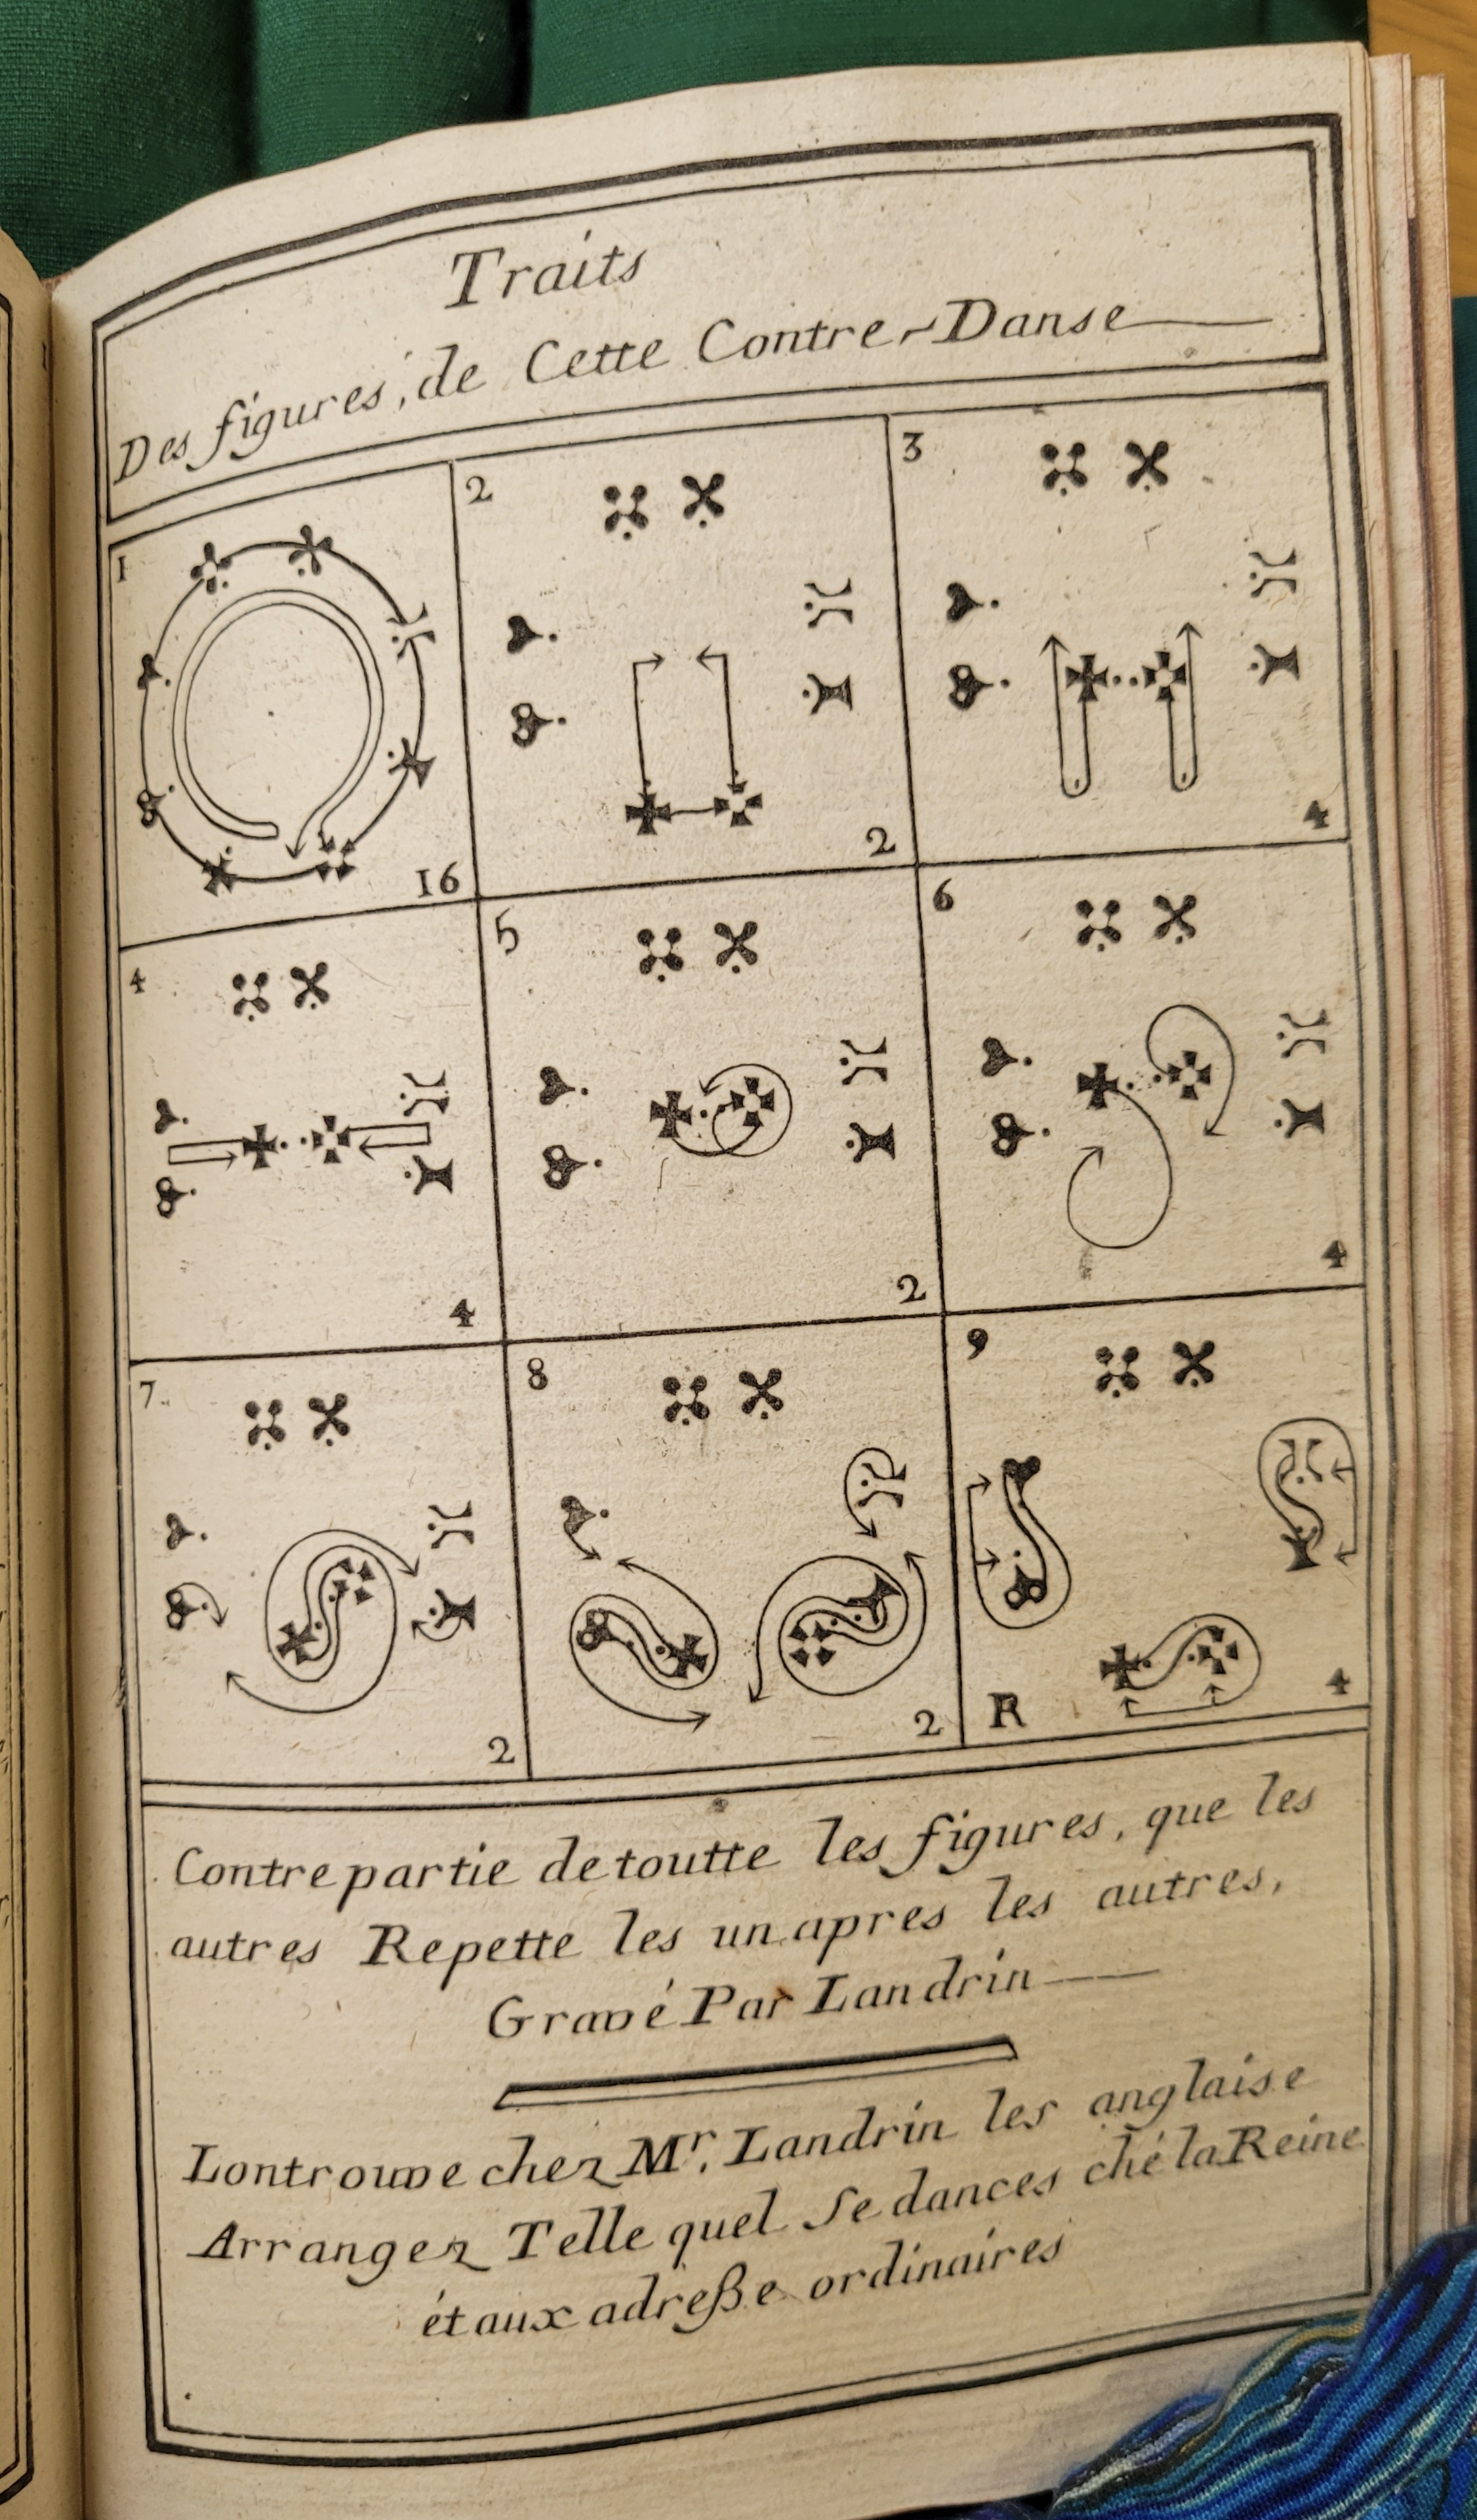 Traits
Des figures, de Cette Contre-Danse
1
16
2
2
3
4
4
4
5
2
6
4
7
2
8
2
9
R
4
Contrepartie de toutte les figures, que les
autres Repette les un apres les autres,
Gravé Par Landrin
Lontrouve chez Mr. Landrin les anglaise
Arrangez Telle quel Se dances ché la Reine
ét aux adreße ordinaires